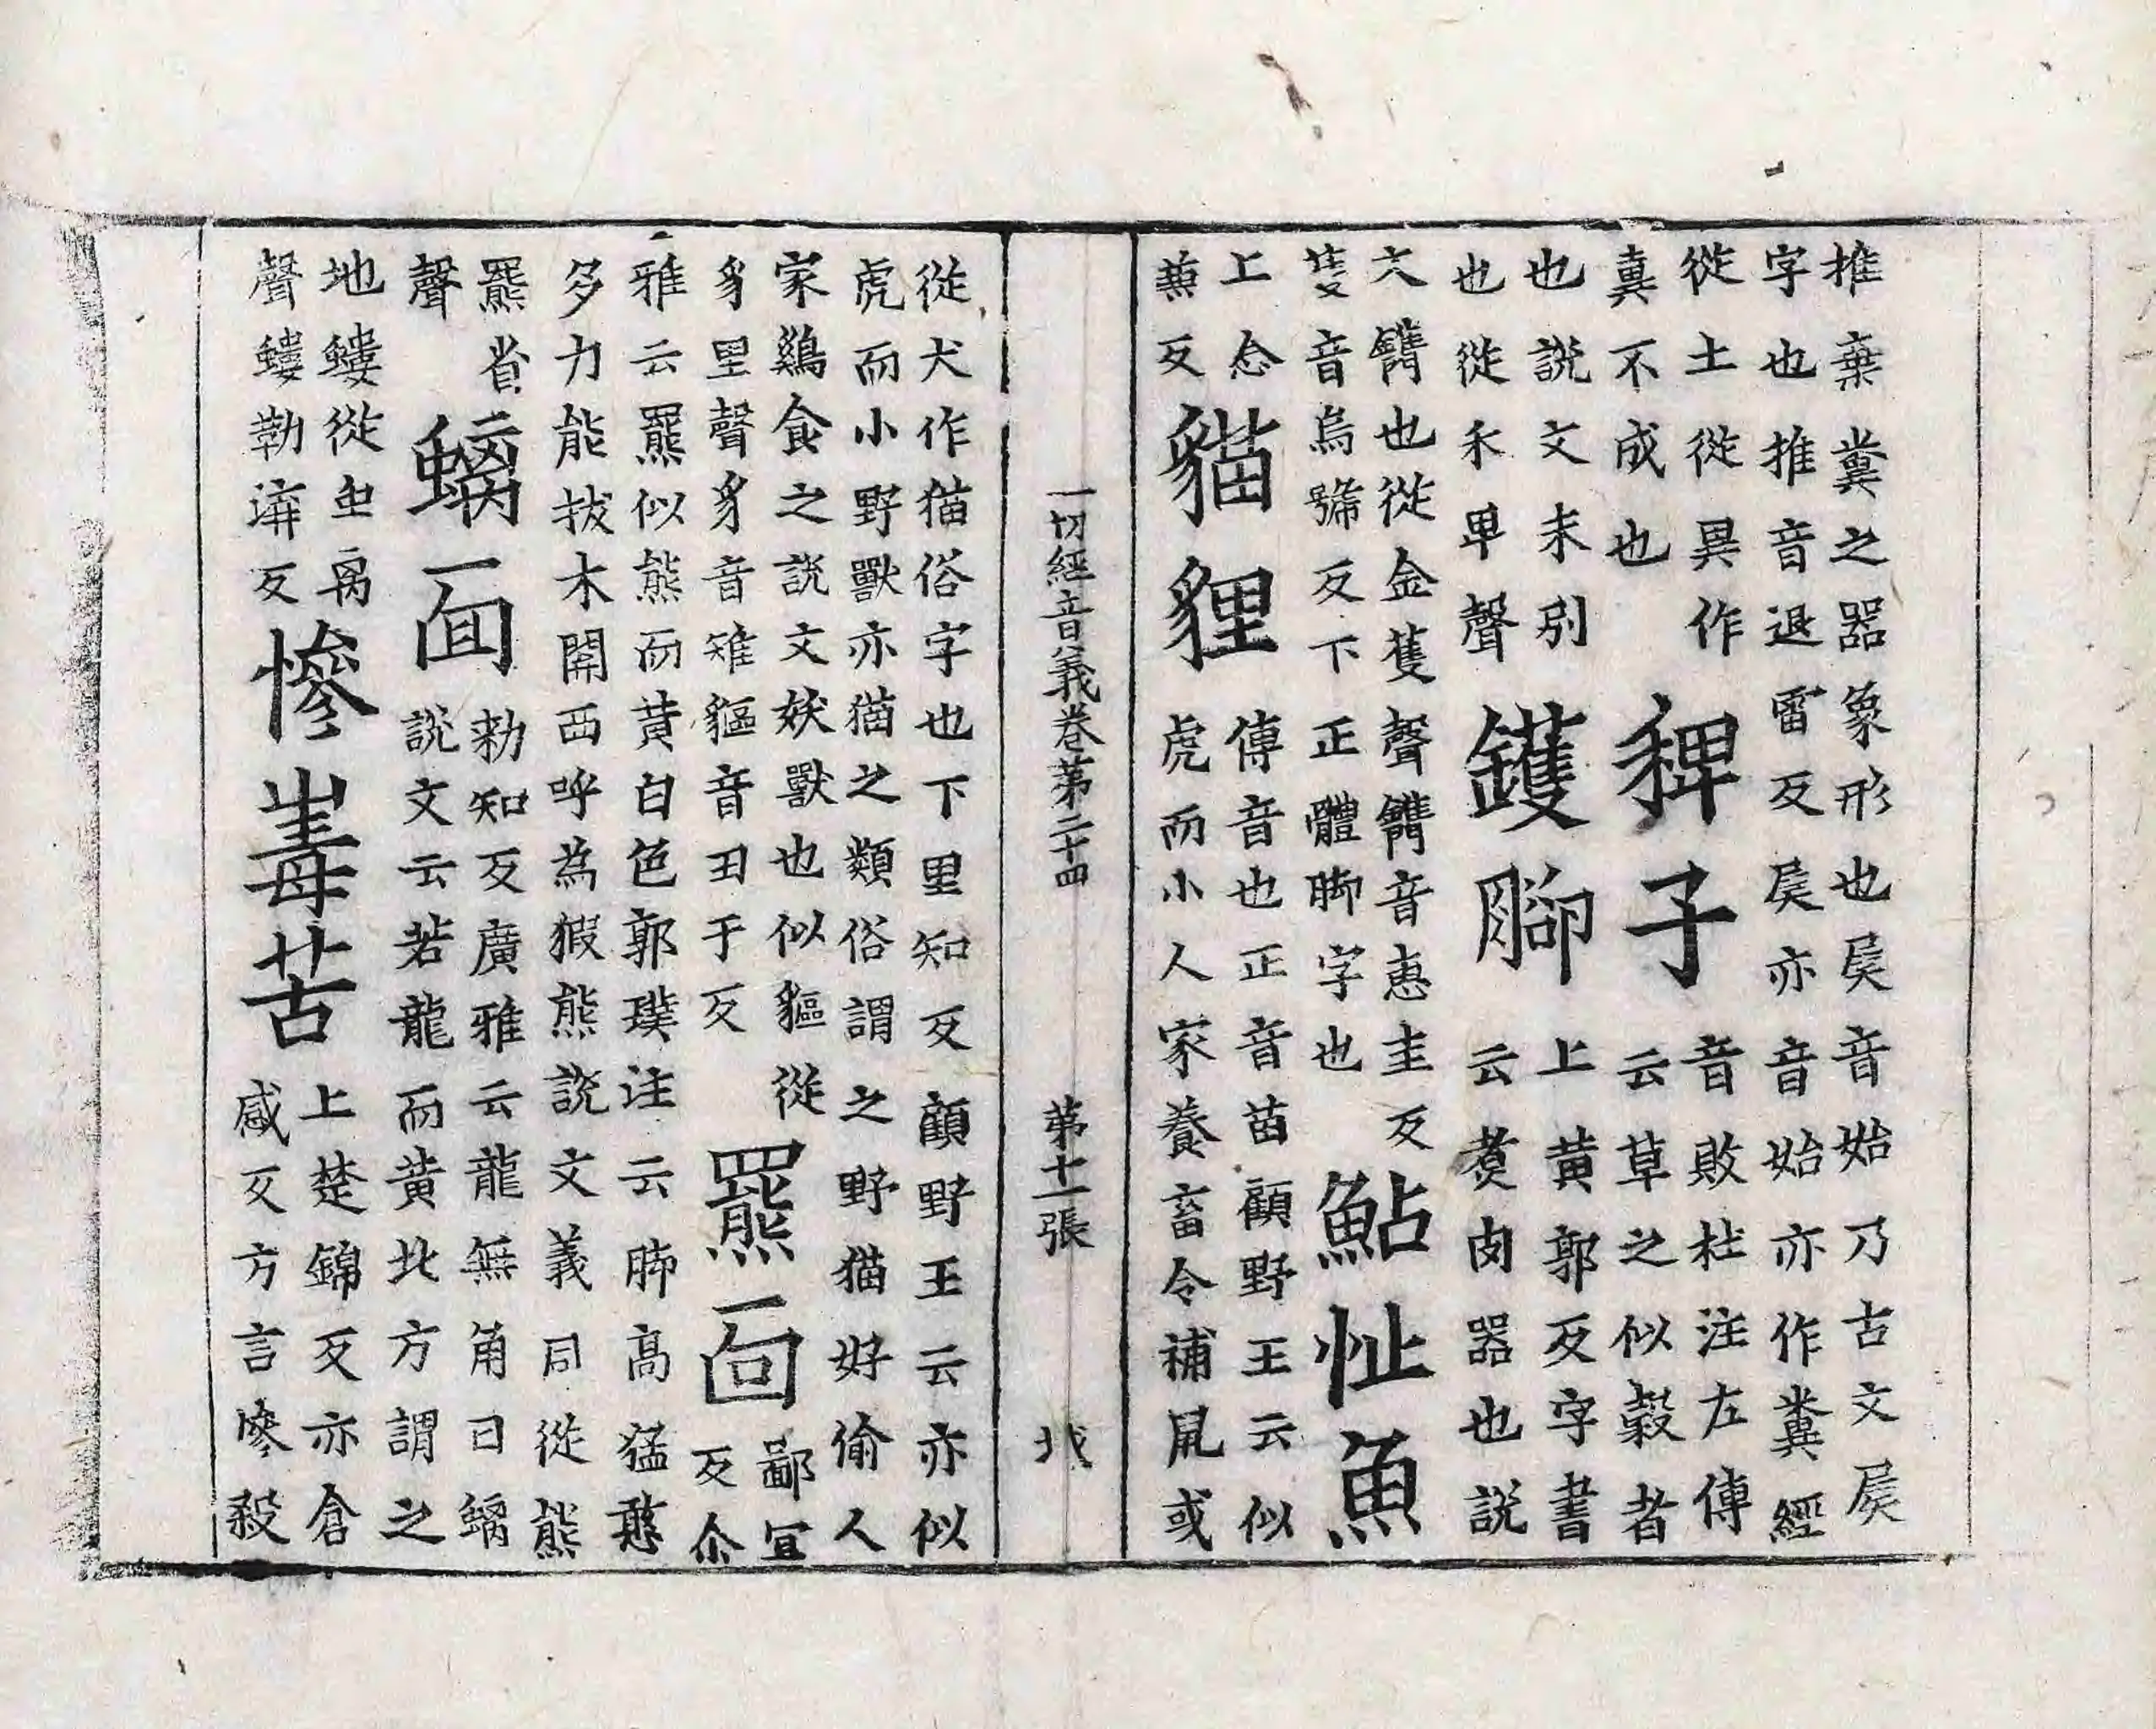 推棄糞之器象形也𡱁音始乃古文𡱁
字也推音退雷反𡱁亦音始亦作糞經
從土從異作
糞不成也
稗子
音敗杜注左傳
云草之似穀者
也說文耒別
也從禾卑聲
鑊腳
上黃郭反字書
云煑肉器也說
文鑴也從金蒦聲鑴音惠圭反
隻音烏虢反下正體脚字也
鮎魚
上念
蒹反
貓貍
傳音也正音苗顧野王云似
虎而小人家養畜令補鼠或
一切經音義卷第二十四 第十一張
從犬作猫俗字也下里知反顧野王云亦似
虎而小野獸亦猫之類俗謂之野猫好偷人
家鷄食之說文妖獸也似貙從
豸里聲豸音雉貙音丑于反
羆面
鄙宜
反尒
雅云羆似熊而黃白色郭璞注云脚高猛憨
多力能拔木關西呼為猳熊說文義同從熊
羆省
聲
螭面
勑知反廣雅云龍無角曰螭
說文云若龍而黃北方謂之
地螻從虫离
聲螻勒溝反
慘毒苦
上楚錦反亦倉
感反方言慘殺